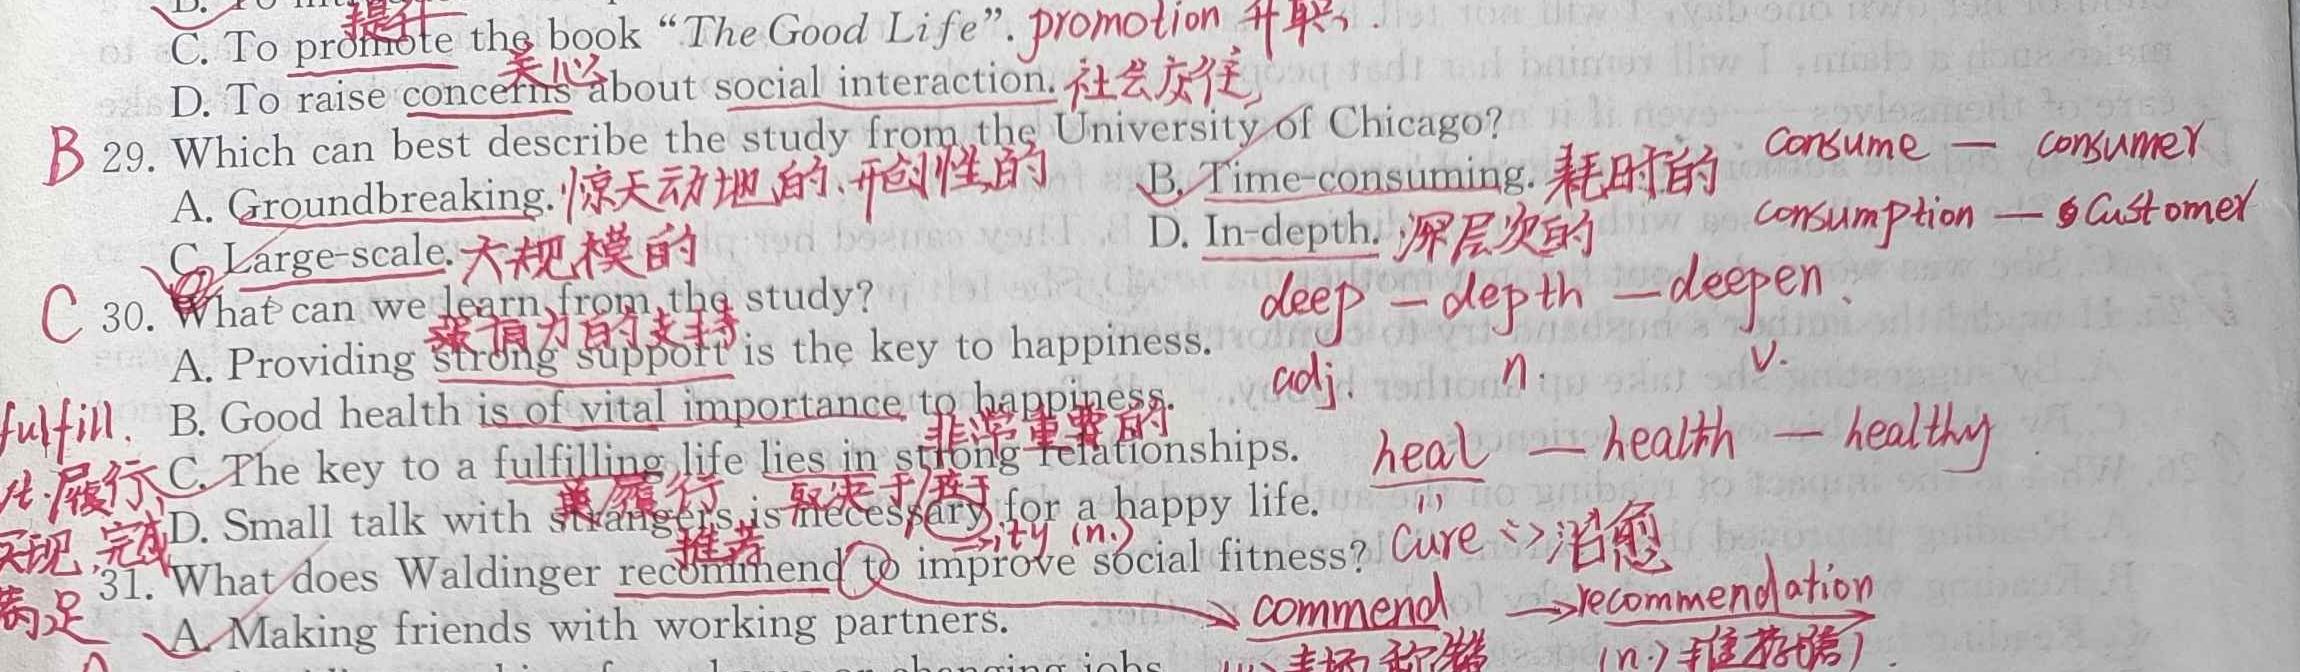 提升
C. To promote the book “The Good Life”. promotion 升职
关心
D. To raise concerns about social interaction. 社会交往
B 29. Which can best describe the study from the University of Chicago?
consume — consumer
A. Groundbreaking. 惊天动地的、开创性的 B. Time-consuming. 耗时的
consumption — customer
C. Large-scale. 大规模的 D. In-depth. 深层次的
deep — depth — deepen.
adj. n. v.
C 30. What can we learn from the study?
强有力的支持
A. Providing strong support is the key to happiness.
B. Good health is of vital importance to happiness.
非常重要的
heal — health — healthy
fulfill.
C. The key to a fulfilling life lies in strong relationships.
履行、 取决于/在于
D. Small talk with strangers is necessary for a happy life.
实现, 完成
→ity (n.)
cure <> 治愈
推荐
31. What does Waldinger recommend to improve social fitness?
满足
commend → recommendation
A. Making friends with working partners.
表扬 称赞 (n.) 推荐(信)
changing jobs